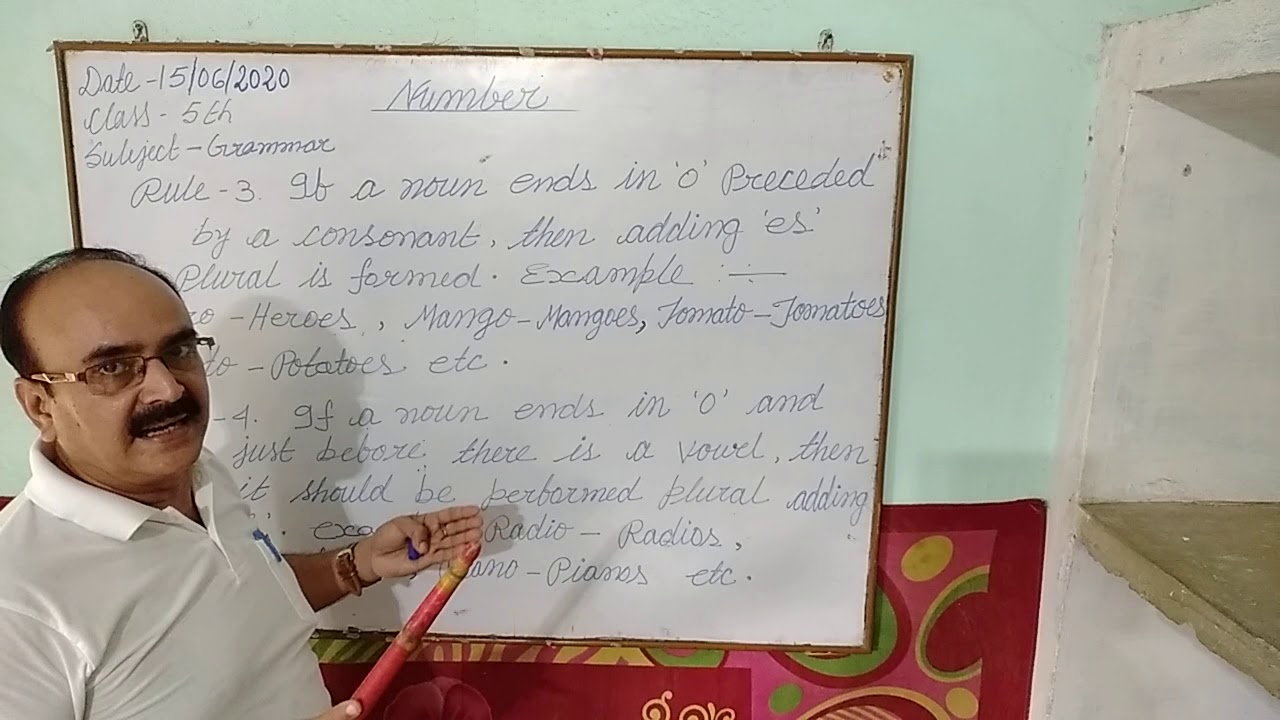 Date - 15/06/2020
Number
Class - 5th
Subject - Grammar
Rule - 3. If a noun ends in 'o' Preceded
by a consonant, then adding 'es'
Plural is formed. Example :-
ro - Heroes, Mango - Mangoes, Tomato - Tomatoes
to - Potatoes etc.
- 4. If a noun ends in 'o' and
just before there is a vowel, then
it should be performed plural adding
Radio - Radios,
iano - Pianos etc.